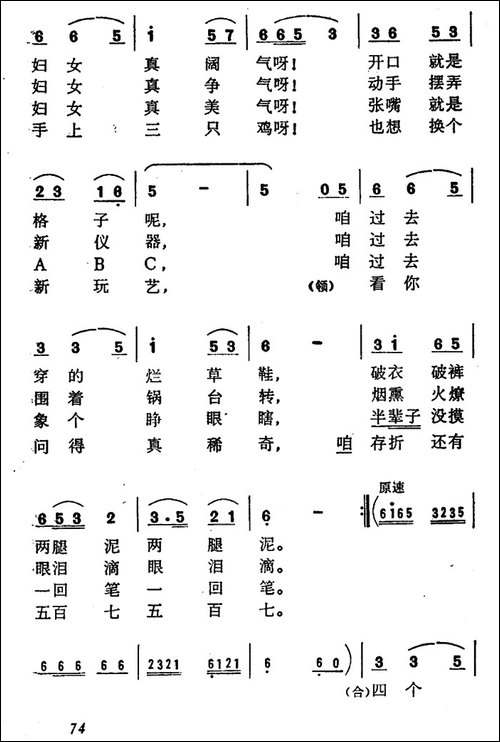 6 6 5 | i 5 7 | 6 6 5 3 | 3 6 5 3
妇女 真 阔 气呀! 开口 就是
妇女 真 争 气呀! 动手 摆弄
妇女 真 美 气呀! 张嘴 就是
手上 三 只 鸡呀! 也想 换个
2 3 1 6 | 5 - | 5 0 5 | 6 6 5
格 子 呢, 咱 过 去
新 仪 器, 咱 过 去
A B C, 咱 过 去
新 玩 艺, (领) 看 你
3 3 5 | i 5 3 | 6 - | 3 i 6 5
穿 的 烂 草 鞋, 破衣 破裤
围 着 锅 台 转, 烟熏 火燎
象 个 睁 眼 瞎, 半辈子 没摸
问 得 真 稀 奇, 咱 存折 还有
原速
6 5 3 2 | 3 · 5 2 1 | 6 - :‖ (6 i 6 5 3 2 3 5
两腿 泥 两 腿 泥。
眼泪 滴 眼 泪 滴。
一回 笔 一 回 笔。
五百 七 五 百 七。
6 6 6 6 6 | 2 3 2 1 6 1 2 1 | 6 6 0) | 3 3 5
(合) 四 个
74